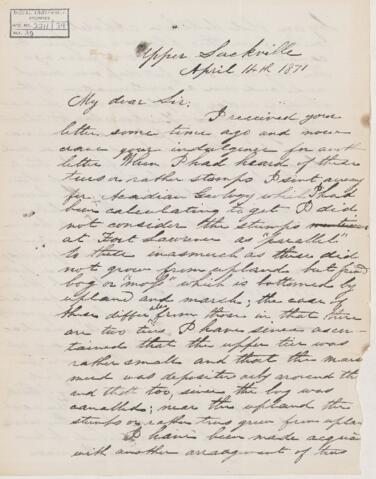 McGILL UNIVERSITY
ARCHIVES
ACC. NO. 2211/34
REF. 39
Upper Sackville
April 14th 1871
My dear Sir;
I received your
letter some time ago and now
crave your indulgence for another
letter When I had heard of these
trees or rather stumps I sent away
for Acadian Geology which I had
been calculating to get I did
not consider the stumps
at Fort Lawrence as "parallel"
to these inasmuch as these did
not grow from upland but from
bog or "moss" which is bottomed by
upland and marsh; the case of
these differ from those in that there
are two tiers, I have since ascer-
tained that the upper tier was
rather small and that the marsh
mud was deposited only around the
end that too, since the bog was
canalled; near the upland the
stumps or rather trees grew from upland
I have been made acquain
with another arrangement of trees